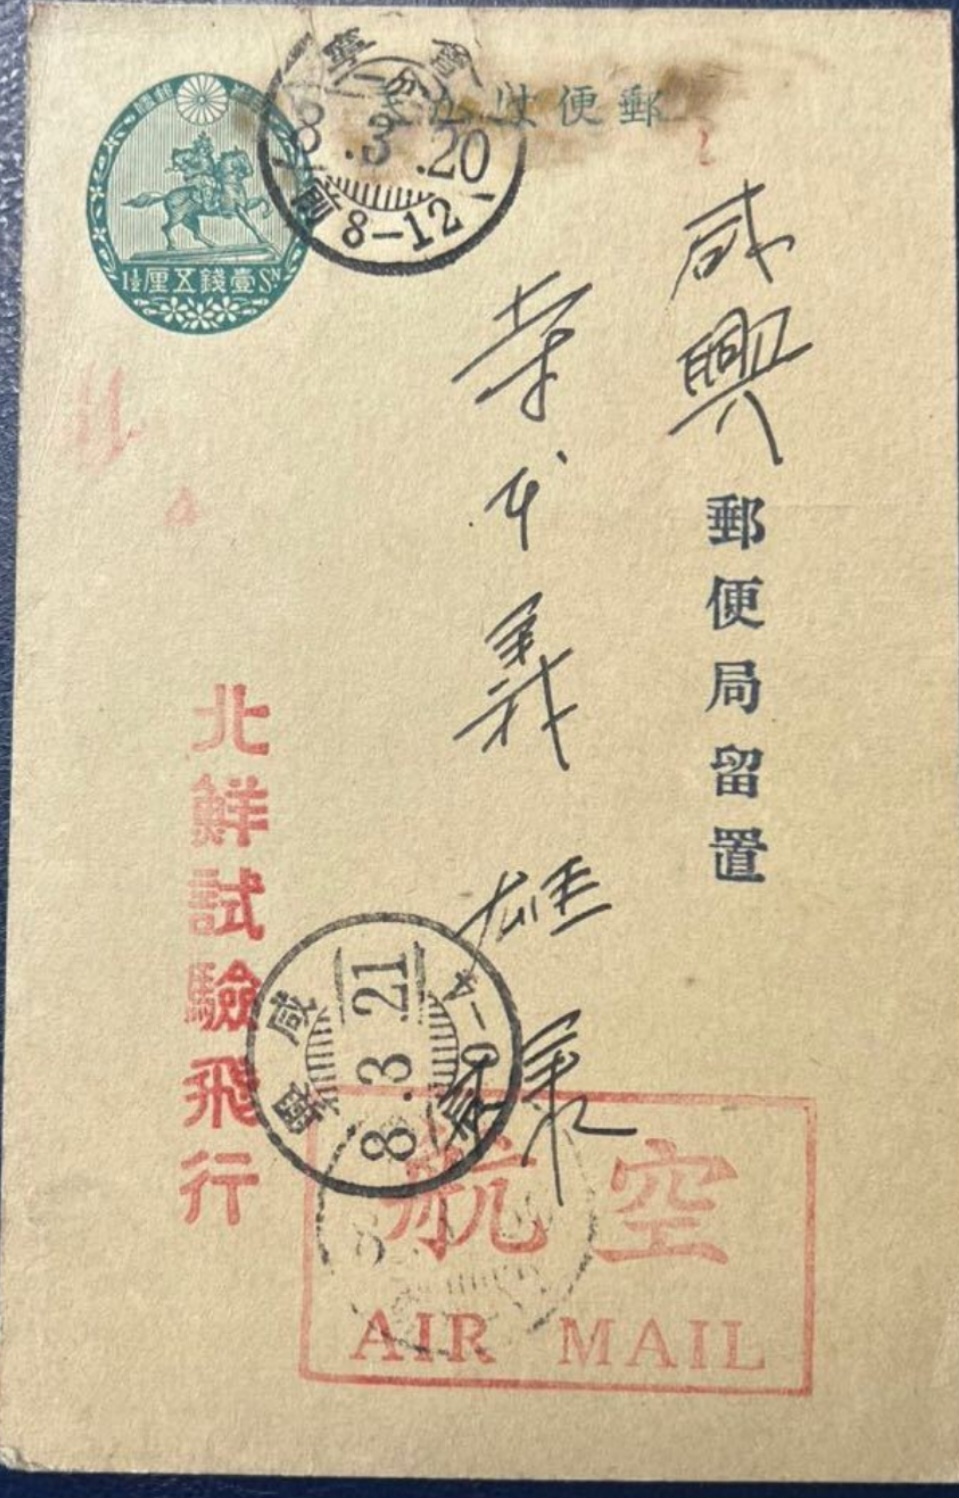 郵便はかき
壹錢五厘
1½ Sɴ
會寧
8.3.20
8-12
咸興
郵便局留置
義雄
北鮮試驗飛行
咸興
8.3.21
0-4
航空
AIR MAIL